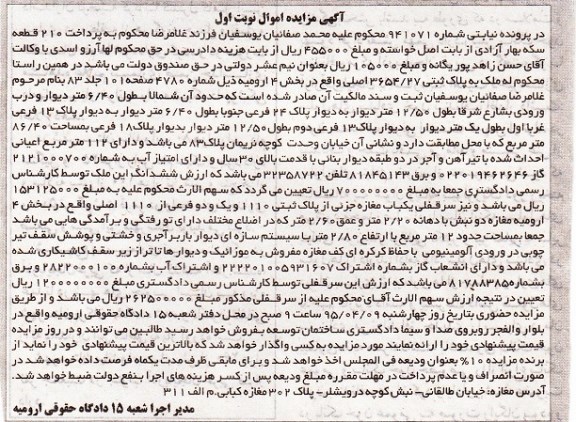 آگهی مزایده اموال نوبت اول
در پرونده نیابتی شماره ۹۴۱۰۷۱ محکوم علیه محمد صفائیان یوسفیان فرزند غلامرضا محکوم به پرداخت ۲۱۰ قطعه
سکه بهار آزادی از بابت اصل خواسته و مبلغ ۴۵۵۰۰۰ ریال از بابت هزینه دادرسی در حق محکوم لها آرزو اسدی با وکالت
آقای حسن زاهد پور یگانه و مبلغ ۱۰۵۰۰۰ ریال بعنوان نیم عشر دولتی در حق صندوق دولت می باشد در همین راستا
محکوم له ملک به پلاک ثبتی ۳۶۵۴/۲۷ اصلی واقع در بخش ۴ ارومیه ذیل شماره ۴۷۸۰ صفحه ۱۰۱ جلد ۸۳ بنام مرحوم
غلامرضا صفائیان یوسفیان ثبت و سند مالکیت آن صادر شده است که حدود آن شمالا بطول ۶/۴۰ متر دیوار و درب
ورودی بشارع شرقا بطول ۱۲/۵۰ متر دیوار به دیوار پلاک ۲۴ فرعی جنوبا بطول ۶/۴۰ متر دیوار به دیوار پلاک ۱۳ فرعی
غربا اول بطول یک متر دیوار به دیوار پلاک ۱۳ فرعی دوم بطول ۱۲/۵۰ متر دیوار بدیوار پلاک ۱۸ فرعی بمساحت ۸۶/۴۰
متر مربع که با محل مطابقت دارد و نشانی آن خیابان وحدت کوچه نریمان پلاک ۸۳ می باشد و دارای ۱۱۲ متر مربع اعیانی
احداث شده با تیر آهن و آجر در دو طبقه دیوار بنائی با قدمت بالای ۳۰ سال و دارای امتیاز آب به شماره ۲۱۲۱۰۰۰۷۰۰
گاز ۰۲۲۰۱۹۴۶۲۶۴۶ و برق ۸۱۸۴۵۱۴۳ تلفن ۳۲۳۵۸۷۲۲ می باشد که ارزش ششدانگ این ملک توسط کارشناس
رسمی دادگستری جمعا به مبلغ ۷۰۰۰۰۰۰۰۰۰ ریال تعیین می گردد که سهم الارث محکوم علیه به مبلغ ۱۵۳۱۲۵۰۰۰۰
ریال می باشد و نیز سرقفلی یکباب مغازه جزئی از پلاک ثبتی ۱۱۱۰ و یک و دو فرعی از ۱۱۱۰ اصلی واقع در بخش ۴
ارومیه مغازه دو نبش با دهانه ۲/۲۰ متر و عمق ۲/۶۰ متر که در اضلاع مختلف دارای تو رفتگی و برآمدگی هایی می باشد
جمعا بمساحت حدود ۱۲ متر مربع با ارتفاع ۲/۸۰ متر با سیستم سازه ای دیوار باربر آجری و خشتی و پوشش سقف تیر
چوبی در ورودی آلومینیومی با حفظ کرکره ای کف مغازه مفروش به موزائیک و دیوارها تا تراز زیر سقف کاشیکاری شده
می باشد و دارای انشعاب گاز بشماره اشتراک ۲۲۲۲۰۱۰۰۵۹۳۱۶۰۷ و اشتراک آب بشماره ۲۸۲۲۰۰۰۱۰۰ و برق
بشماره ۸۱۷۸۸۳۸۵ می باشد که ارزش این سرقفلی توسط کارشناس رسمی دادگستری مبلغ ۱۲۰۰۰۰۰۰۰۰ ریال
تعیین در نتیجه ارزش سهم الارث آقای محکوم علیه از سرقفلی مذکور مبلغ ۲۶۲۵۰۰۰۰۰ ریال می باشد و از طریق
مزایده حضوری بتاریخ روز چهارشنبه ۹۵/۰۴/۰۹ ساعت ۹ صبح در محل دفتر شعبه ۱۵ دادگاه حقوقی ارومیه واقع در
بلوار والفجر روبروی صدا و سیما دادگستری ساختمان توسعه بفروش خواهد رسید طالبین می توانند و در روز مزایده
قیمت پیشنهادی خود را ارائه نمایند مورد مزایده به کسی واگذار خواهد شد که بالاترین قیمت پیشنهادی خود را نماید از
برنده مزایده ۱۰% بعنوان ودیعه فی المجلس اخذ خواهد شد و برای مابقی ظرف مدت یکماه فرصت داده خواهد شد در
صورت انصراف و یا عدم پرداخت در مهلت مقرره مبلغ ودیعه پس از کسر هزینه های اجرا بنفع دولت ضبط خواهد شد.
آدرس مغازه: خیابان طالقانی- نبش کوچه درویشلر- پلاک ۳۰۲ مغازه کبابی. م الف ۳۱۱
مدیر اجرا شعبه ۱۵ دادگاه حقوقی ارومیه